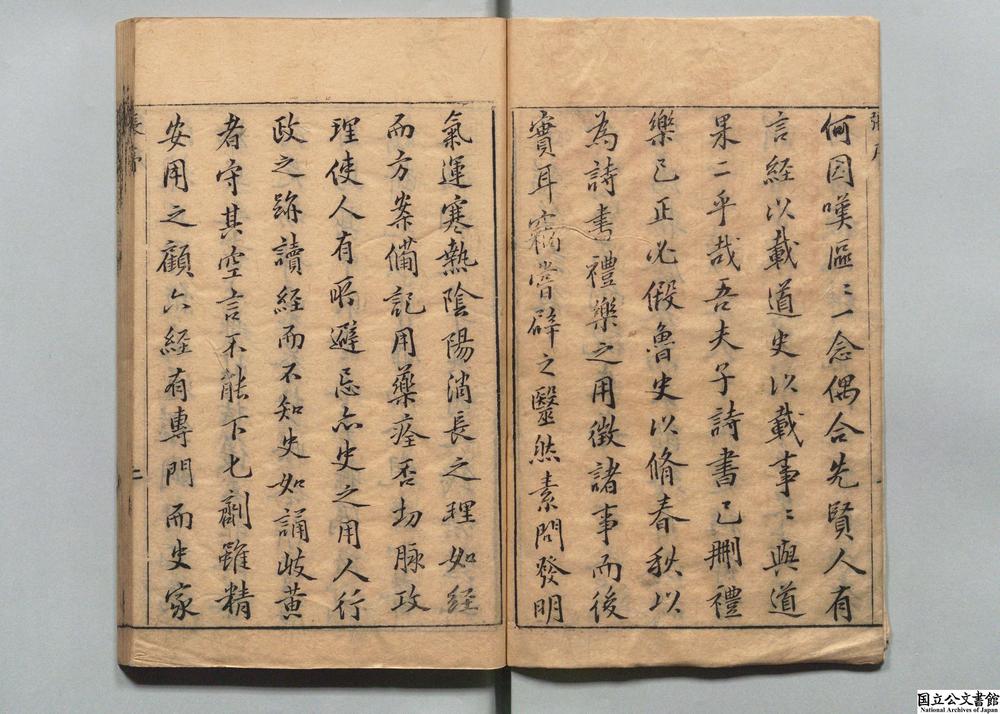 何因嘆區〻一念偶合先賢人有
言經以載道史以載事〻與道
果二乎哉吾夫子詩書已刪禮
樂已正必假魯史以脩春秋以
為詩書禮樂之用徵諸事而後
實耳竊嘗辟之毉然素問發明
氣運寒熱陰陽消長之理如經
而方案備記用藥痊否切脉政
理使人有所避忌亦史之用人行
政之跡讀經而不知史如誦岐黃
者守其空言不能下七劑雖精
安用之顧六經有專門而史家
張序
二
国立公文書館
National Archives of Japan